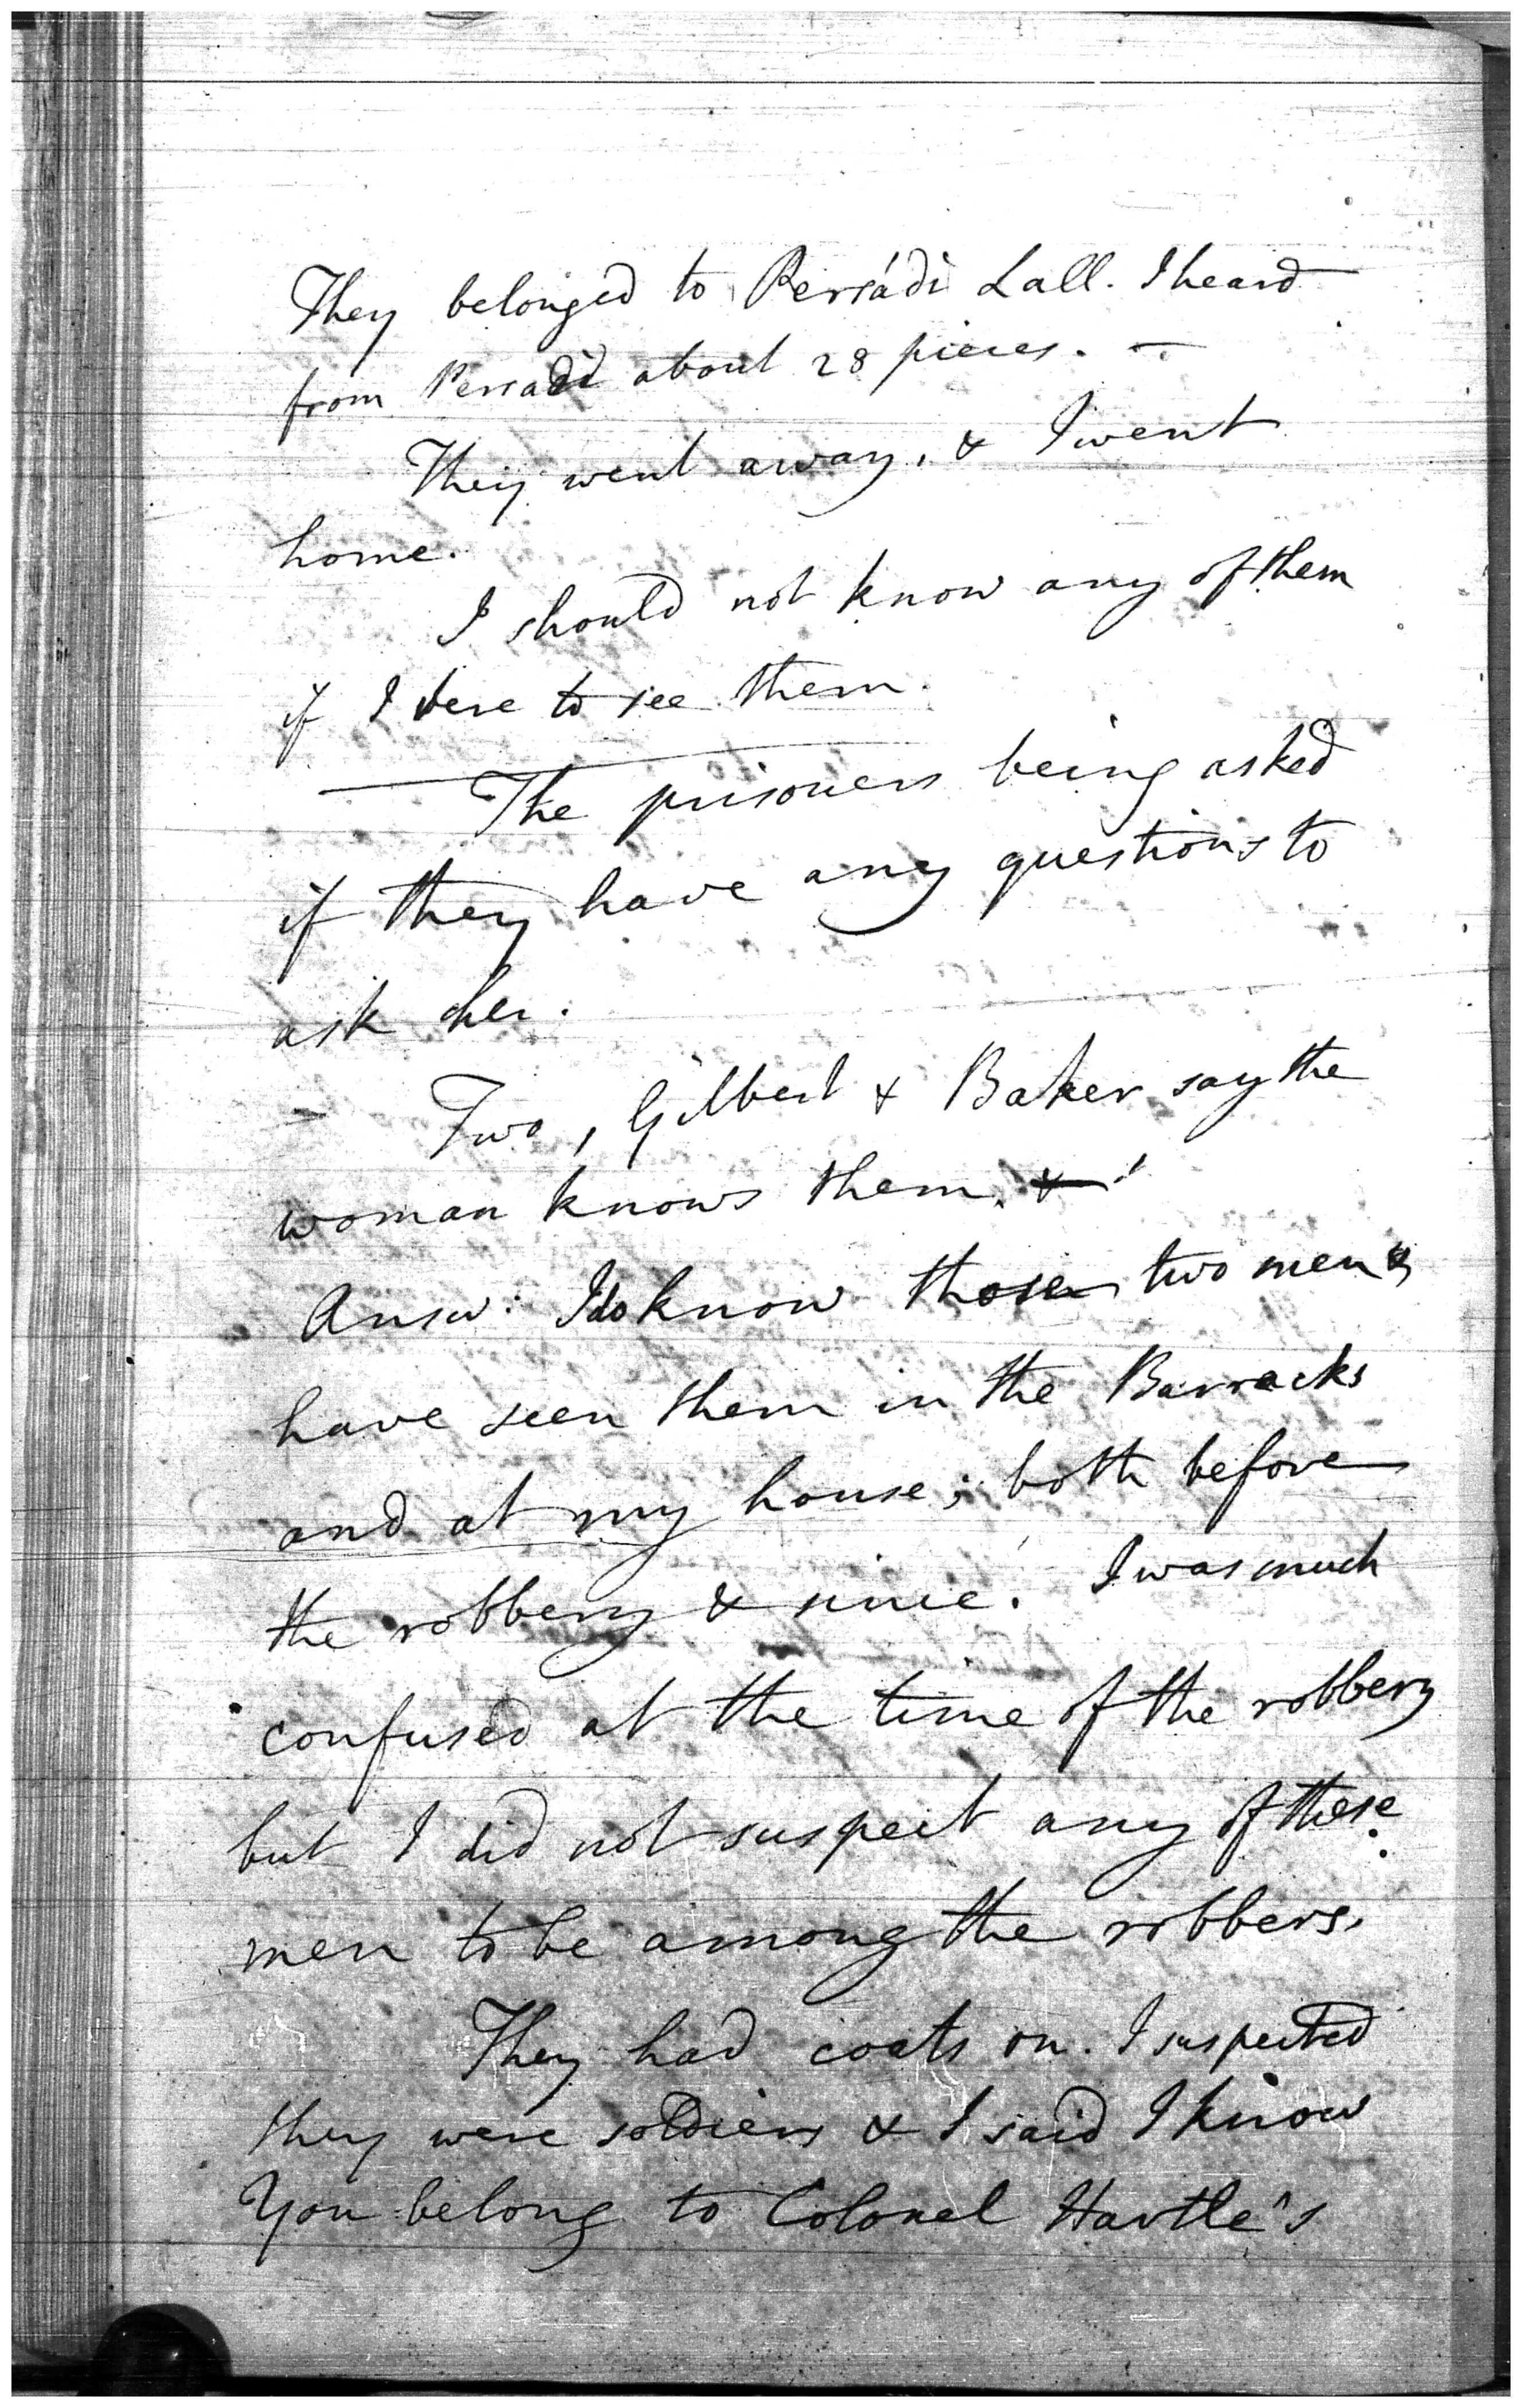 They belonged to Persádi Lall. I heard
from Persadi about 28 pieces. —
They went away, & I went
home.
I should not know any of them
if I were to see them.
The prisoners being asked
if they have any questions to
ask her.
Two, Gilbert & Baker say the
woman knows them. &
Answ: I do know those two men &
have seen them in the Barracks
and at my house; both before
the robbery & since. I was much
confused at the time of the robbery
but I did not suspect any of these
men to be among the robbers.
They had coats on. I suspected
they were soldiers & I said I know
You belong to Colonel Hartle's